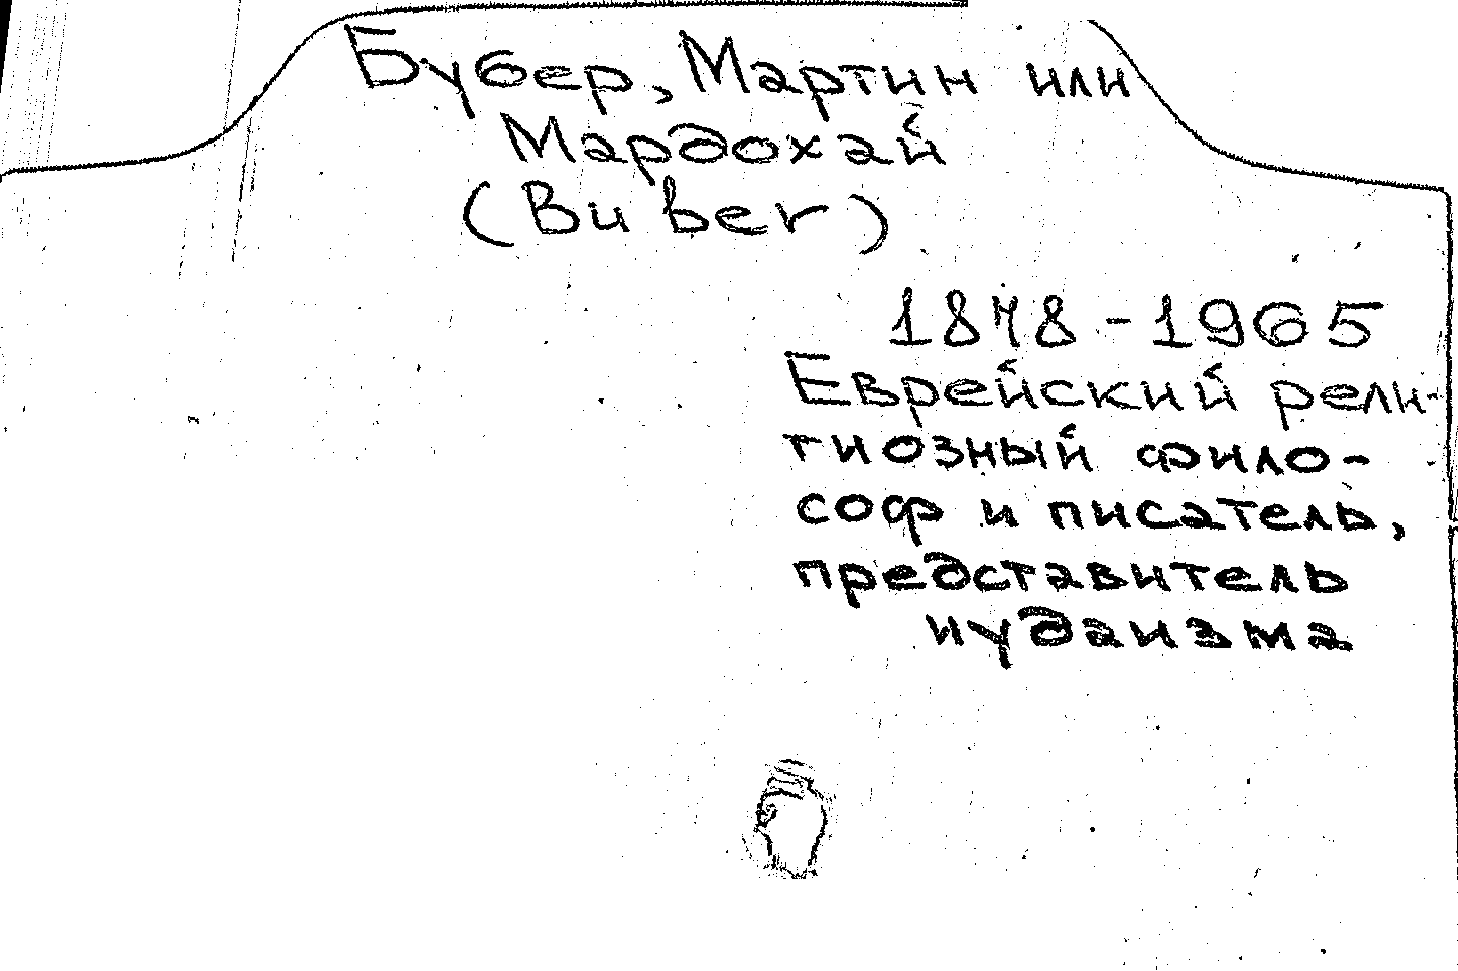 Бубер, Мартин или
Мардохай
(Buber)
1878-1965
Еврейский рели-
гиозный фило-
соф и писатель,
представитель
иудаизма